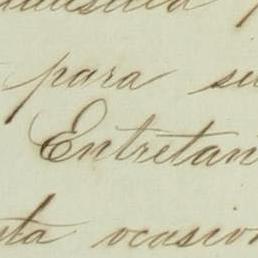 para su
Entretan
sta ocasion